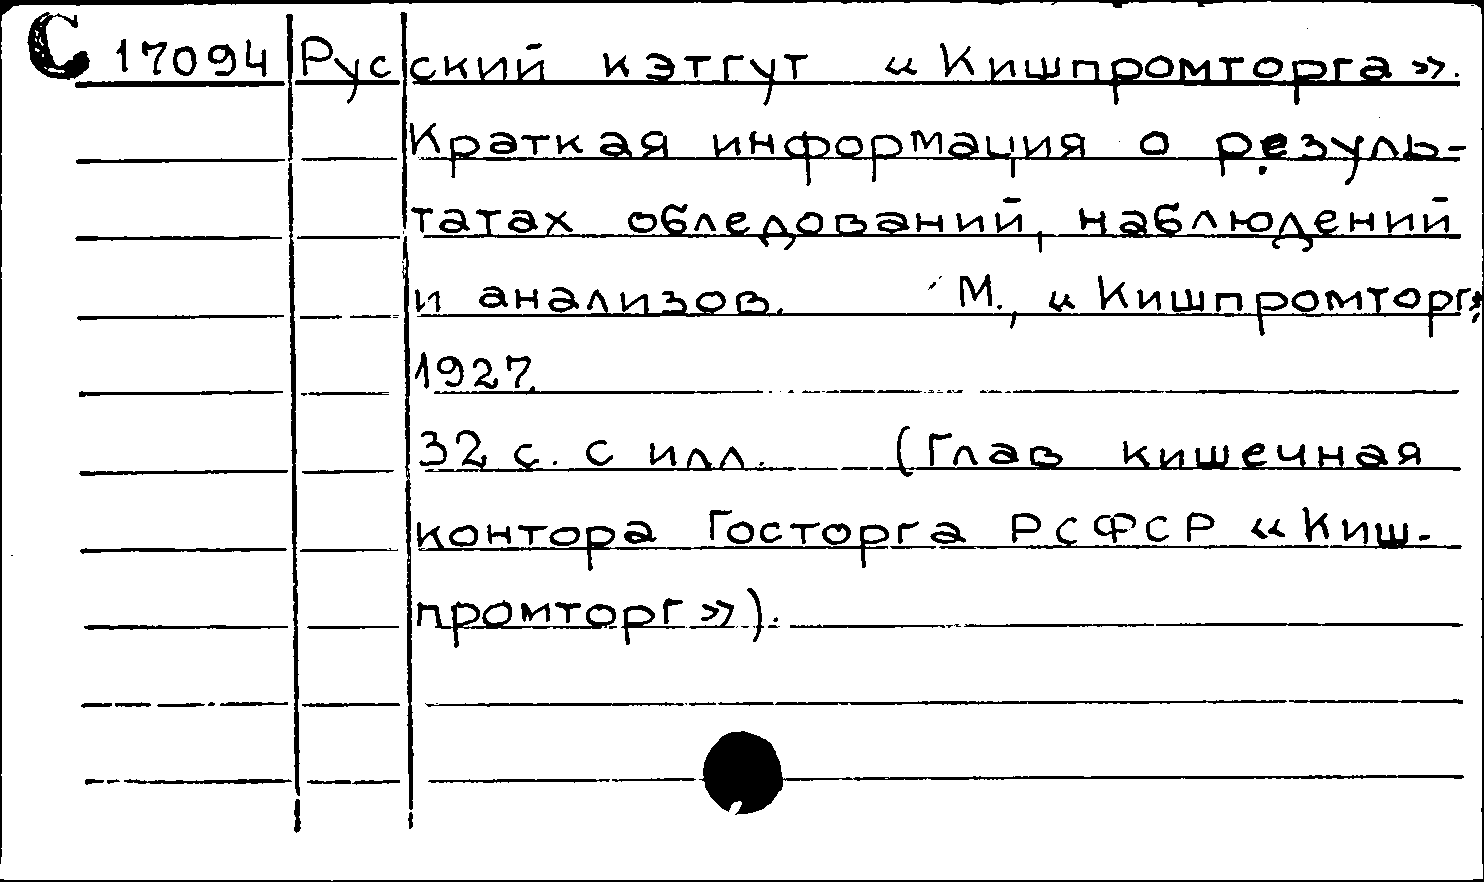 С 17094 Русский кэтгут «Кишпромторга».
Краткая информация о резуль-
татах обледований, наблюдений
и анализов. М., «Кишпромторг»,
1927.
32 с. с илл. (Глав кишечная
контора Госторга РСФСР «Киш-
промторг»).